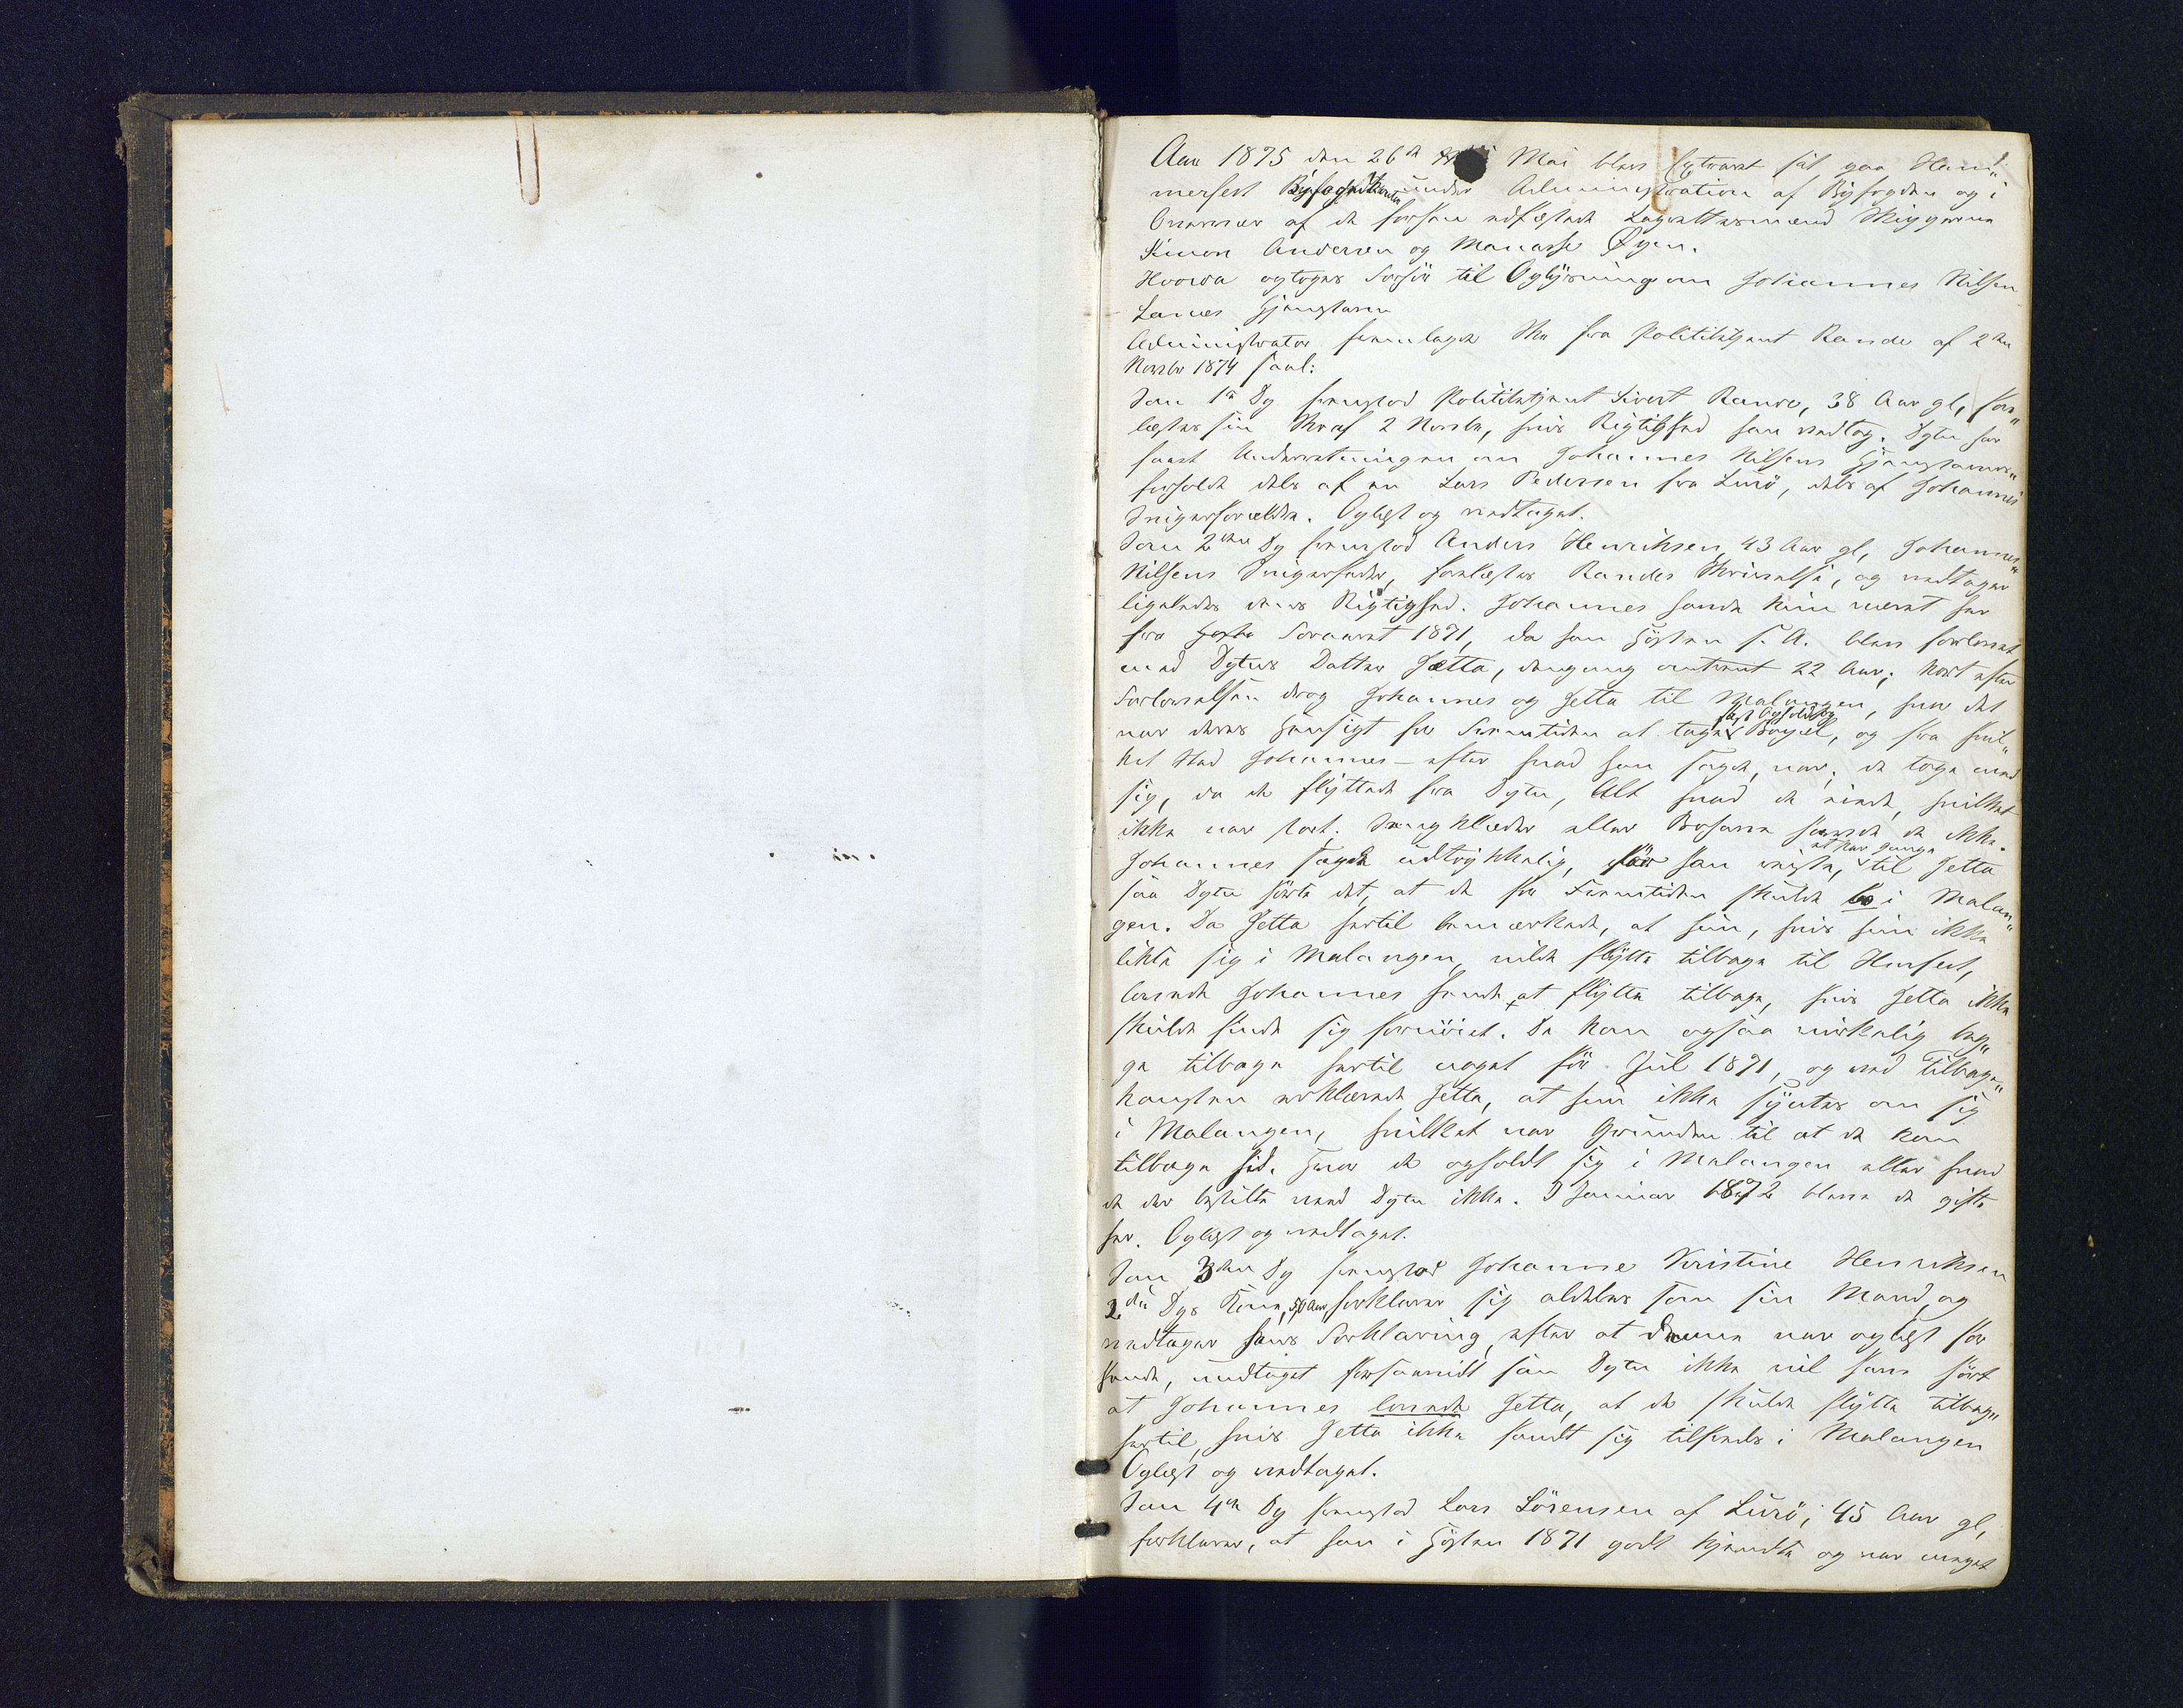 Aar 1875 den 26de Mai blev Extraret sat paa Ham„
merfest Byfogedkontor under Administration af Byfogden og i
Overvær af de forhen edfæstede Lagrettesmænd Skipperne
Simon Andersen og Manasse Øyen.
Hvorda optoges Forhør til Oplysning om Johannes Nilsen
Lanæs Hjemstavn
Administrator fremlagde Skr fra Politibetjent Rande af 2den
Novbr 1874 saal:
Som 1te Dp fremstod Politibetjent Sivert Rande, 38 Aar gl, fore„
læstes sin Skr af 2 Novbr, hvis Rigtighed han vedtog. Dptn har
faaet Underretningen om Johannes Nilsens Hjemstavns„
forhold dels af en Lars Pedersen fra Surö, dels af Johannes
Svigerforældre. Oplæst og vedtaget.
Som 2den Dp fremstod Anders Henriksen, 43 Aar gl, Johannes
Nilsens Svigerfader, forelæstes Randes Skrivelse, og vedtager
ligeledes denns Rigtighed. Johannes havde kun været her
fra Foraaret 1871, da han Hösten s. A. blev forlovet
med Dptns Datter Jetta, dengang omtrent 22 Aar; kort efter
Forlovelsen drog Johannes og Jetta til Malangen, hvor det
var deres Hensigt for Fremtiden at tage fast Ophold
Bopæl, og fra hvil„
ket Sted Johannes – efter hvad han sagde, var; de toge med
sig, da de flyttede fra Dptn, Alt hvad de eiede, hvilket
ikke var stort. Sengklæder eller Bohave havde de ikke.
Johannes sagde udtrykkelig, för han reiste, et par Gange
til Jetta
saa Dptn hörte det, at de for Fremtiden skulde bo i Malan„
gen. Da Jetta hertil bemærkede, at hun, hvis hun ikke
likte sig i Malangen, vilde flytte tilbage til Hmfest,
lovede Johannes hende at flytte tilbage, hvis Jetta ikke
skulde finde sig fornöiet. De kom ogsaa virkelig beg„
ge tilbage hertil noget för Jul 1871, og ved Tilbage„
komsten erklærede Jetta, at hun ikke syntes om sig
i Malangen, hvilket var Grunden til at de kom
tilbage hid. Hvor de opholdt sig i Malangen eller hvad
de der bestilte ved Dptn ikke. I Januar 1872 bleve de gifte
her. Oplæst og vedtaget.
Som 3die Dp fremstod Johanne Kristine Henriksen
2den Dps Kone, 50 Aar, forklarer sig aldeles som sin Mand og
vedtager hans Forklaring, efter at denne var oplæst for
hende, undtaget forsaavidt som Dptn ikke vil have hört
at Johannes lovede Jetta, at de skulde flytte tilbage
hertil, hvis Jetta ikke fandt sig tilfreds i Malangen
Oplæst og vedtaget.
Som 4de Dp fremstod Lars Sörensen af Surö, 45 Aar gl,
forklarer, at han i Hösten 1871 godt kjendte og var meget